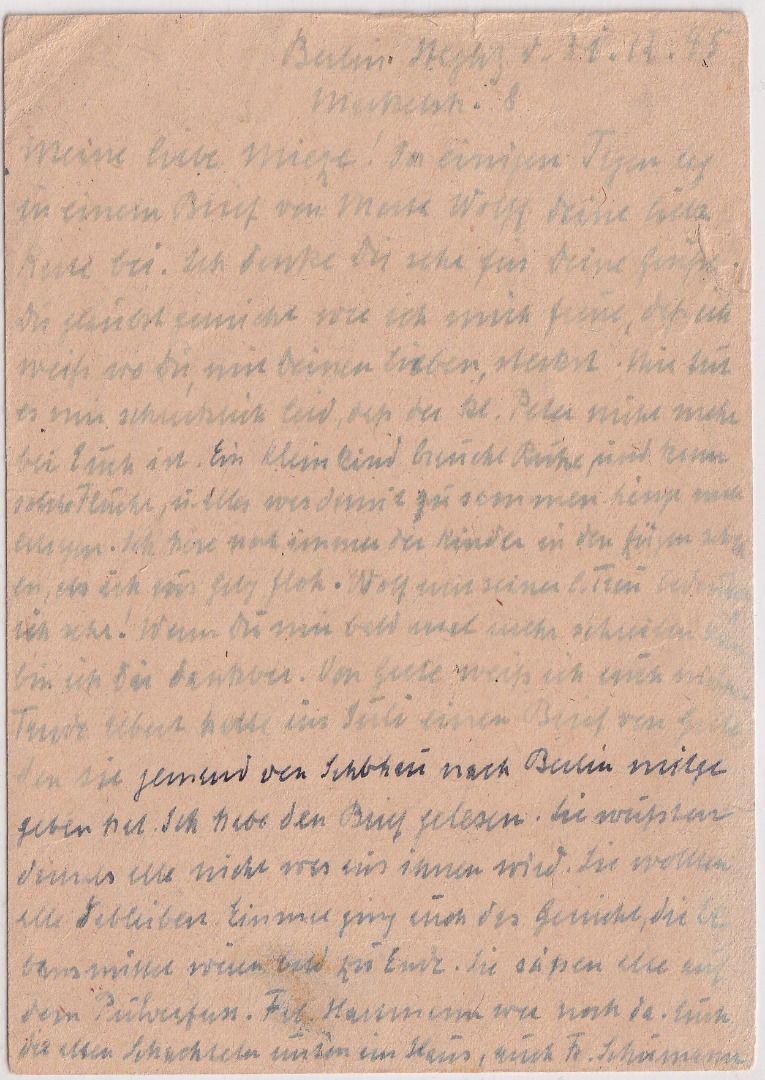 Berlin. Steglitz d. 31.12.45
Merkelstr. 8
Meine liebe Mieze! Vor einigen Tagen lag
in einem Brief von Marta Wolff deine liebe
Karte bei. Ich danke Dir sehr für Deine Grüße.
Du glaubst garnicht wie ich mich freue, daß ich
weiß wo Du, mit Deinen lieben, steckst. Mir tut
es nur schrecklich leid, daß der kl. Peter nicht mehr
bei Euch ist. Ein Kleinkind braucht Ruhe, und kann
solche Flucht, u. alles was damit zusammen hängt nicht
ich noch immer der Kinder in den Zügen
en, als ich aus floh. Wolf mit seiner l. Frau
ich sehr! Wenn Du mir bald mal mehr schreiben
bin ich Dir dankbar. Von weiß ich auch nichts.
Trude Albert hatte im Juli einen Brief von
den sie jemand von nach Berlin mitge
geben hat. Ich habe den Brief gelesen. Sie wußten
damals alle nicht was aus ihnen wird. Sie wollten
alle dableiben. Einmal ging auch das Gerücht, die Le
bensmittel wären bald zu Ende. Sie säßen alle auf
dem Pulverfass. Frl. Hartmann war noch da. Auch
die alten Schachteln unten im Haus, auch Fr. Schumann